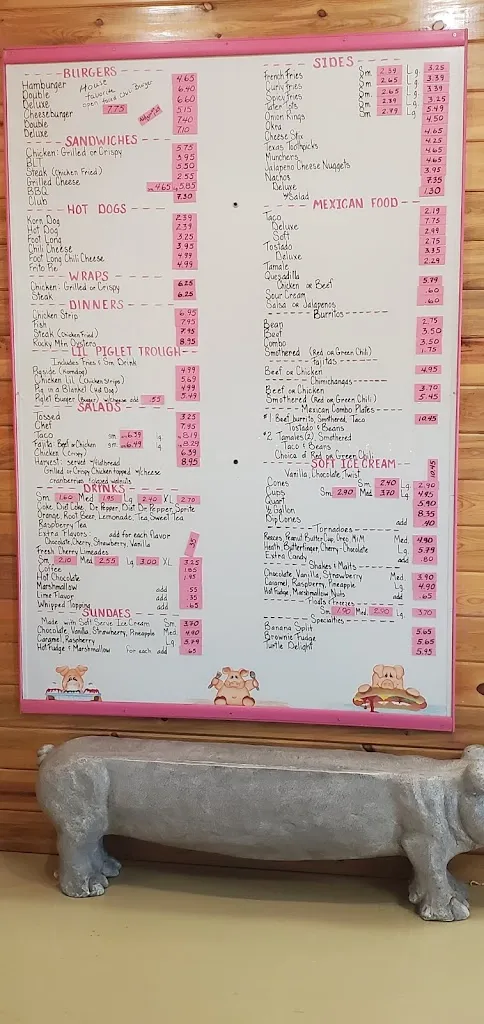 BURGERS
Hamburger 4.65
Double 6.40
Deluxe 6.60
Cheeseburger 5.15
Double 7.40
Deluxe 7.10
House favorite
open faced Chili Burger
7.75
SANDWICHES
Chicken: Grilled or Crispy 5.75
BLT 3.95
Steak (Chicken Fried) 5.50
Grilled Cheese 2.55
BBQ sm 4.65 lg 5.85
Club 7.30
HOT DOGS
Korn Dog 2.39
Hot Dog 2.39
Foot Long 3.25
Chili Cheese 3.95
Foot Long Chili Cheese 4.99
Frito Pie 4.99
WRAPS
Chicken: Grilled or Crispy 6.25
Steak 6.25
DINNERS
Chicken Strip 6.95
Fish 7.95
Steak (Chicken Fried) 7.95
Rocky Mtn Oysters 8.95
LIL PIGLET TROUGH
Includes Fries & Sm. Drink
Pigside (Korndog) 4.99
Chicken Lil (Chicken Strips) 5.69
Pig in a Blanket (Hot Dog) 4.99
Piglet Burger (Burger) w/cheese add .55 5.49
SALADS
Tossed 3.25
Chef 7.95
Taco sm 6.39 lg 8.19
Fajita: Beef or Chicken sm 6.49 lg 8.29
Chicken (Crispy) 6.39
Harvest: served w/flatbread 8.95
Grilled or Crispy Chicken topped w/cheese
cranberries & glazed walnuts
DRINKS
Sm. 1.60 Med. 1.95 Lg. 2.40 XL 2.70
Coke, Diet Coke, Dr. Pepper, Diet Dr. Pepper, Sprite
Orange, Root Beer, Lemonade, Tea, Sweet Tea
Raspberry Tea
Extra Flavors add for each flavor
Chocolate, Cherry, Strawberry, Vanilla
Fresh Cherry Limeades
Sm. 2.10 Med. 2.55 Lg. 3.00 XL 3.25
Coffee 1.85
Hot Chocolate 1.95
Marshmallow add .55
Lime Flavor add .35
Whipped Topping add .65
SUNDAES
Made with Soft Serve Ice Cream Sm. 3.70
Chocolate, Vanilla, Strawberry, Pineapple Med. 4.90
Caramel, Raspberry Lg. 5.79
Hot Fudge & Marshmallow for each add .65
SIDES
French Fries Sm. 2.39 Lg. 3.25
Curly Fries Sm. 2.65 Lg. 3.39
Spicy Fries Sm. 2.65 Lg. 3.39
Tater Tots Sm. 2.39 Lg. 3.25
Onion Rings Sm. 2.99 Lg. 5.49
Okra 4.50
Cheese Stix 4.65
Texas Toothpicks 4.25
Munchers 4.65
Jalapeno Cheese Nuggets 4.65
Nachos 3.95
Deluxe 7.35
w/Salad 1.30
MEXICAN FOOD
Taco 2.19
Deluxe 7.75
Soft 2.99
Tostado 2.75
Deluxe 3.35
Tamale 2.29
Quesadilla
Chicken or Beef 5.79
Sour Cream .60
Salsa or Jalapenos .60
Burritos
Bean 2.75
Beef 3.50
Combo 3.50
Smothered (Red or Green Chili) 1.75
Fajitas
Beef or Chicken 4.95
Chimichangas
Beef or Chicken 3.70
Smothered (Red or Green Chili) 5.45
Mexican Combo Plates
#1 Beef burrito, Smothered, Taco 10.45
Tostado & Beans
#2 Tamales (2), Smothered
Taco & Beans
Choice of Red or Green Chili
SOFT ICE CREAM
Vanilla, Chocolate, Twist
Cones Sm. 2.40 Lg. 2.90
Cups Sm. 2.90 Med. 3.70 Lg. 4.85
Quart 5.90
1/2 Gallon 8.35
Dip Cones add .40
Tornadoes
Reeces, Peanut Butter Cup, Oreo, M&M Med. 4.90
Heath, Butterfinger, Cherry-Chocolate Lg. 5.79
Extra Candy add .80
Shakes & Malts
Chocolate, Vanilla, Strawberry Med. 3.90
Caramel, Raspberry, Pineapple Lg. 4.90
Hot Fudge, Marshmallow, Nuts add .65
Floats & Freezes
Sm. 1.90 Med. 2.90 Lg. 3.70
Specialties
Banana Split 5.65
Brownie Fudge 5.65
Turtle Delight 5.95